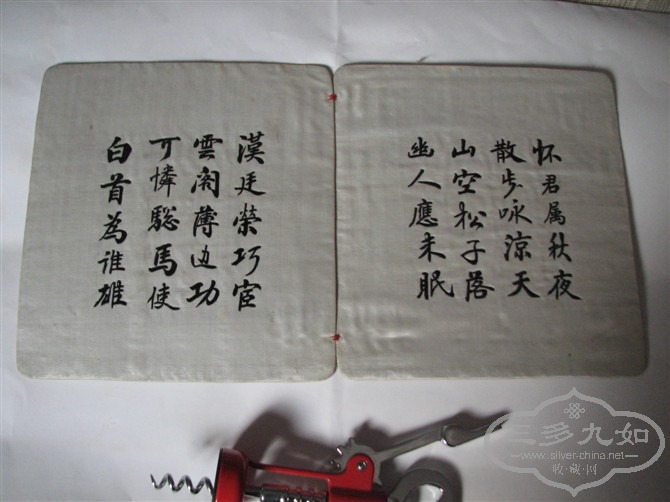 怀君属秋夜
散步咏涼天
山空松子落
幽人應未眠
漢廷榮巧宦
雲閣薄边功
可憐騘馬使
白首為谁雄
三多九如
www.silver-china.net
收藏网